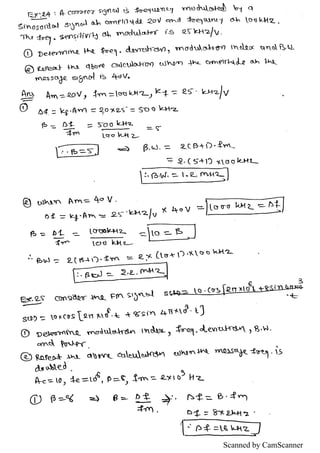 Ex:24: A carrier signal is frequency modulated by a
sinusoidal signal of amplitude 20V and frequency of 100kHz.
The freq. sensitivity of modulator is 25 kHz/V.
① Determine the freq. deviation, modulation index and B.W.
② Repeat the above calculation when the amplitude of the
message signal is 40V.
Ans Am=20V, fm=100kHz, Kf = 25 kHz/V
① Δf = Kf.Am = 20x25 = 500 kHz
β = Δf/fm = 500 kHz/100 kHz = 5
∴ β=5 ⇒ B.W. = 2(β+1).fm
= 2.(5+1)x100kHz
∴ BW. = 1.2 MHz
② when Am= 40V.
Δf = Kf.Am = 25 kHz/V x 40V = 1000 kHz = Δf
β = Δf/fm = 1000kHz/100 kHz = 10 = β
∴ BW = 2(β+1).fm = 2x(10+1).x100kHz
∴ BW = 2.2. MHz
Ex:25 consider the FM signal s(t)= 10.cos[2πx10⁶t +8sin4πx10³t
s(t) = 10xcos[2πx10⁶.t +8sin 4πx10³.t]
① Determine modulation index, freq. deviation, B.W.
and Power.
② Repeat the above calculation when the message freq. is
doubled.
Ac=10, fc=10⁶, β=8, fm=2x10³ Hz
① β=8 ⇒ β= Δf/fm. ⇒ Δf= β.fm
Δf= 8x2kHz.
∴ Δf=16 kHz
Scanned by CamScanner